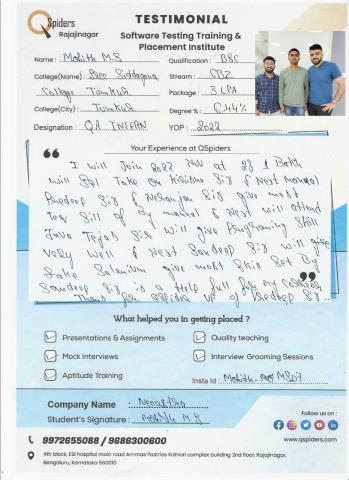 QSpiders
Rajajinagar
TESTIMONIAL
Software Testing Training &
Placement Institute
Name : Mohith M.S
Qualification : BSC
College(Name) : Sree Siddaganga
Stream : CBZ
College Tumkur
Package : 3 LPA
College(City) : Tumkur
Degree % : 6.44%
Designation : QA INTERN
YOP : 2022
Your Experience at QSpiders
I will Join 2022 NOV at 88 1 Bath
will SQl Take on Kishore Sir & Next manual
Pradeep Sir & Sir give most
Skill of My manual & Next will attend
Java Tejas Sir will give Programing Skill
very well & Next Sandeep Sir will give
take Selenium give most Skils Set By
Sandeep Sir is a Help full for my career
Thank for QSpider of Pradeep Sir
What helped you in getting placed ?
Presentations & Assignments
Quality teaching
Mock Interviews
Interview Grooming Sessions
Aptitude Training
Insta Id :
Company Name :
Student's Signature : Mohith M.S
Follow us on :
9972655088 / 9686300600
www.qspiders.com
4th block, ESI hospital main road Ammas Pastries Kathari complex building 2nd floor, Rajajinagar,
Bengaluru, Karnataka 560010